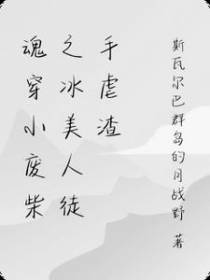 魂穿小废柴
之冰美人徒
手虐渣
斯瓦尔巴群岛的月战野 著